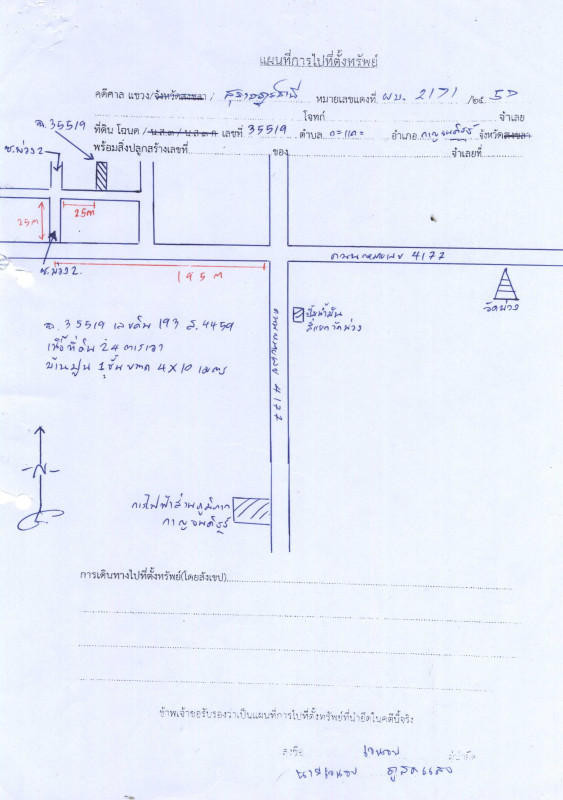 แผนที่การไปที่ตั้งทรัพย์
คดีศาล แขวง/จังหวัดสงขลา / สุราษฎร์ธานี หมายเลขแดงที่ ผบ. 2171 /๒๕ 50
โจทก์ จำเลย
ฉ.35519 ที่ดิน โฉนด /น.ส.๓/น.ส.๓ ก เลขที่ 35519 ตำบล กะแดะ อำเภอ กาญจนดิษฐ์ จังหวัดสงขลา
ซ.ม่วง 2 พร้อมสิ่งปลูกสร้างเลขที่ ของ จำเลยที่
25m
25m
ซ.ม่วง 2.
195 m
ถนนหมายเลข 4177
วัดม่วง
ปั๊มน้ำมัน
สี่แยกวัดม่วง
ฉ. 35519 เลขดิน 193 ส. 4459
เนื้อที่ดิน 24 ตารางวา
บ้านปูน 1 ชั้น ขนาด 4 x 10 เมตร
N
การไฟฟ้าส่วนภูมิภาค
กาญจนดิษฐ์
การเดินทางไปที่ตั้งทรัพย์(โดยสังเขป)
ข้าพเจ้าขอรับรองว่าเป็นแผนที่การไปที่ตั้งทรัพย์ที่นำยึดในคดีนี้จริง
ลงชื่อ ผู้นำยึด